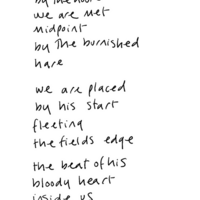 we are met
midpoint
by The burnished
hare
we are placed
by his start
fleeting
the fields edge
the beat of his
bloody heart
inside us